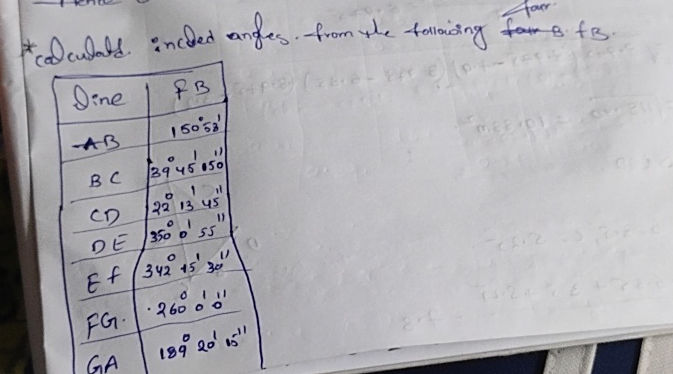 *calculate incled angles. from the following for B. fB.
Line | FB
AB | 150°53'
BC | 39° 45' 50"
CD | 22° 13' 45"
DE | 350° 0' 55"
Ef | 342° 15' 30"
FG. | 260° 0' 0"
GA | 189° 20' 15"